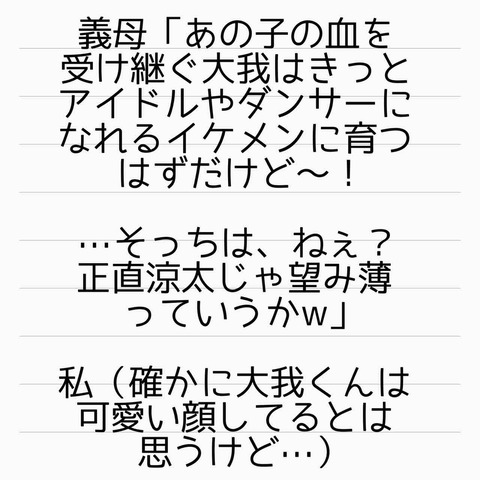 義母「あの子の血を
受け継ぐ大我はきっと
アイドルやダンサーに
なれるイケメンに育つ
はずだけど〜！
…そっちは、ねぇ？
正直涼太じゃ望み薄
っていうかw」
私（確かに大我くんは
可愛い顔してるとは
思うけど…）